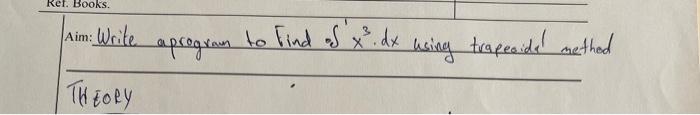 Ref. Books.
Aim: Write a program to Find ₀∫¹ x³.dx using trapezoidal method
THEORY